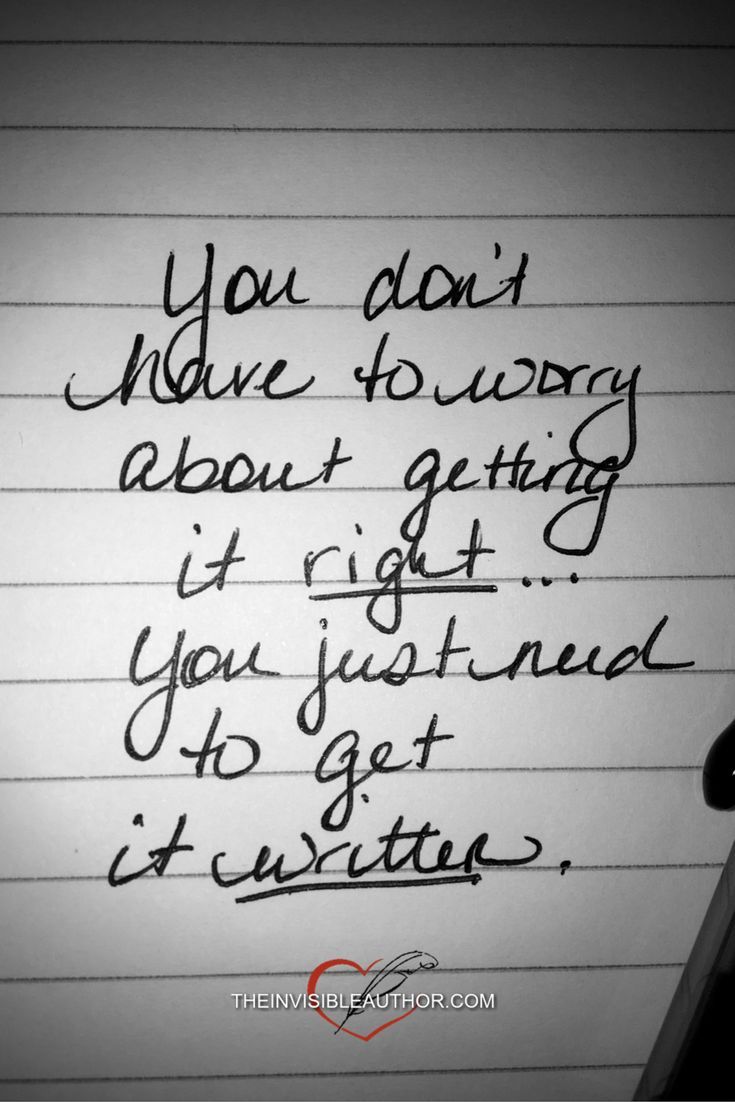 You don't
have to worry
about getting
it right...
You just need
to get
it written.
THEINVISIBLEAUTHOR.COM